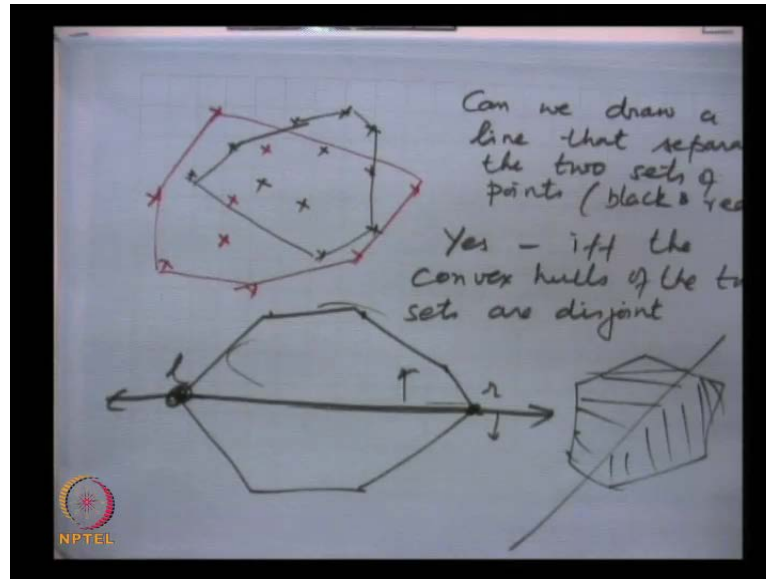 Can we draw a
line that separa
the two sets of
points (black & re
Yes - iff the
convex hulls of the tw
sets are disjoint
l
r
NPTEL